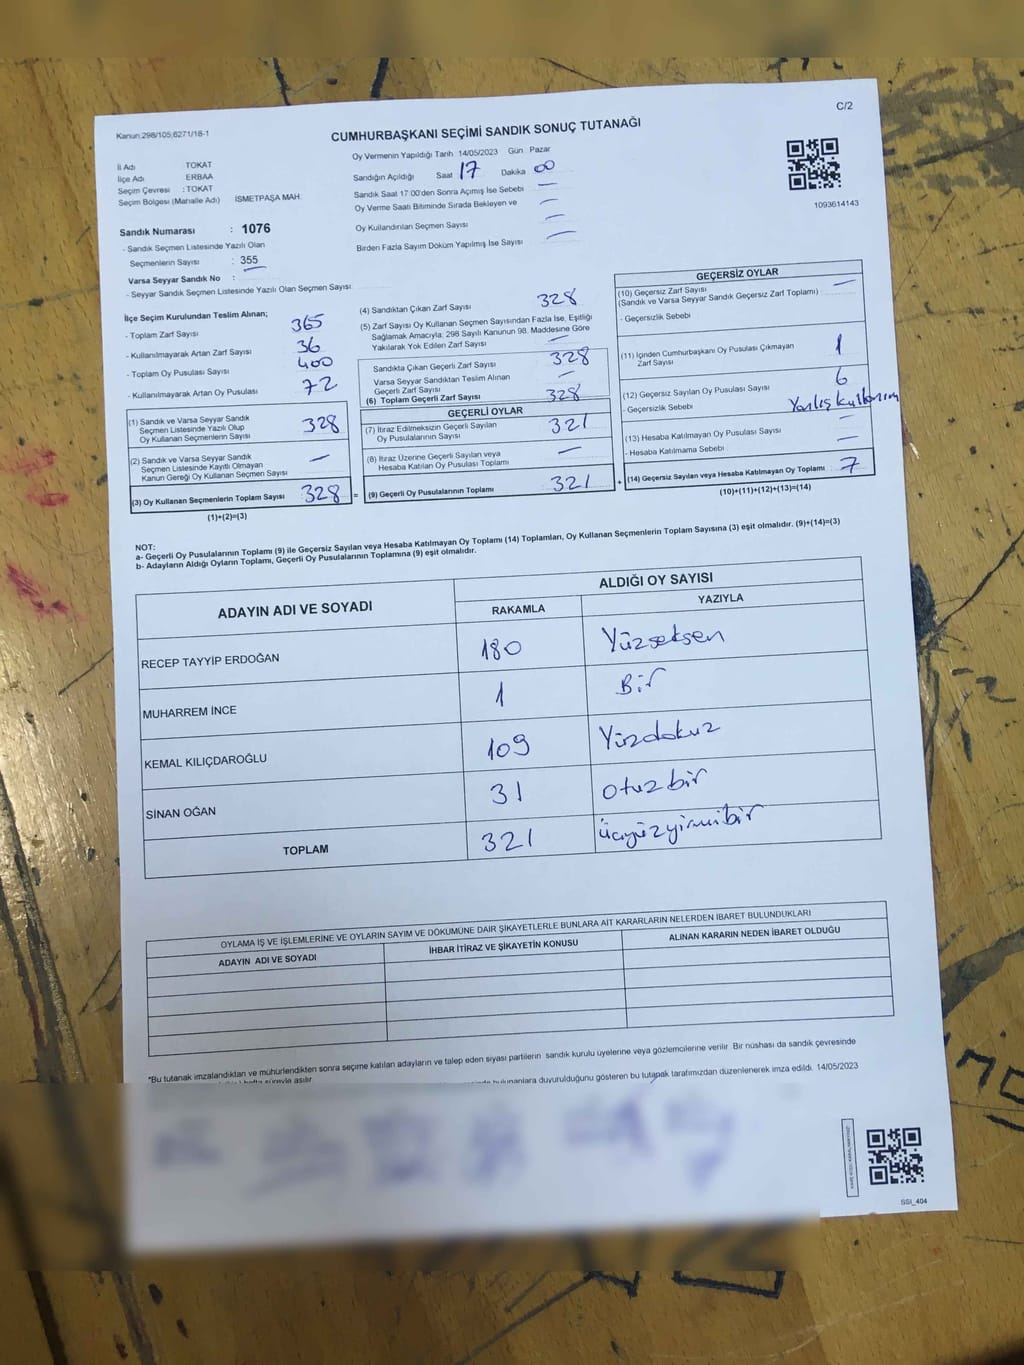 C/2
Kanun:298/105;6271/18-1
CUMHURBAŞKANI SEÇİMİ SANDIK SONUÇ TUTANAĞI
İl Adı TOKAT
İlçe Adı ERBAA
Seçim Çevresi : TOKAT
Seçim Bölgesi (Mahalle Adı) İSMETPAŞA MAH.
Oy Vermenin Yapıldığı Tarih 14/05/2023 Gün Pazar
Sandığın Açıldığı Saat 17 Dakika 00
Sandık Saat 17:00'den Sonra Açımış İse Sebebi —
Oy Verme Saati Bitiminde Sırada Bekleyen ve —
Oy Kullandırılan Seçmen Sayısı —
Birden Fazla Sayım Döküm Yapılmış İse Sayısı —
1093614143
Sandık Numarası : 1076
- Sandık Seçmen Listesinde Yazılı Olan
Seçmenlerin Sayısı : 355
Varsa Seyyar Sandık No :
- Seyyar Sandık Seçmen Listesinde Yazılı Olan Seçmen Sayısı:
İlçe Seçim Kurulundan Teslim Alınan;
- Toplam Zarf Sayısı 365
- Kullanılmayarak Artan Zarf Sayısı 36
- Toplam Oy Pusulası Sayısı 400
- Kullanılmayarak Artan Oy Pusulası 72
(1) Sandık ve Varsa Seyyar Sandık
Seçmen Listesinde Yazılı Olup
Oy Kullanan Seçmenlerin Sayısı 328
(2) Sandık ve Varsa Seyyar Sandık
Seçmen Listesinde Kayıtlı Olmayan
Kanun Gereği Oy Kullanan Seçmen Sayısı —
(3) Oy Kullanan Seçmenlerin Toplam Sayısı 328 =
(1)+(2)=(3)
(4) Sandıktan Çıkan Zarf Sayısı 328
(5) Zarf Sayısı Oy Kullanan Seçmen Sayısından Fazla İse, Eşitliği
Sağlamak Amacıyla; 298 Sayılı Kanunun 98. Maddesine Göre
Yakılarak Yok Edilen Zarf Sayısı —
Sandıkta Çıkan Geçerli Zarf Sayısı 328
Varsa Seyyar Sandıktan Teslim Alınan
Geçerli Zarf Sayısı —
(6) Toplam Geçerli Zarf Sayısı 328
GEÇERLİ OYLAR
(7) İtiraz Edilmeksizin Geçerli Sayılan
Oy Pusulalarının Sayısı 321
(8) İtiraz Üzerine Geçerli Sayılan veya
Hesaba Katılan Oy Pusulası Toplamı —
(9) Geçerli Oy Pusulalarının Toplamı 321 +
GEÇERSİZ OYLAR
(10) Geçersiz Zarf Sayısı —
(Sandık ve Varsa Seyyar Sandık Geçersiz Zarf Toplamı)
- Geçersizlik Sebebi
(11) İçinden Cumhurbaşkanı Oy Pusulası Çıkmayan
Zarf Sayısı 1
(12) Geçersiz Sayılan Oy Pusulası Sayısı 6
- Geçersizlik Sebebi Yanlış kullanım
(13) Hesaba Katılmayan Oy Pusulası Sayısı —
- Hesaba Katılmama Sebebi —
(14) Geçersiz Sayılan veya Hesaba Katılmayan Oy Toplamı 7
(10)+(11)+(12)+(13)=(14)
NOT:
a- Geçerli Oy Pusulalarının Toplamı (9) ile Geçersiz Sayılan veya Hesaba Katılmayan Oy Toplamı (14) Toplamları, Oy Kullanan Seçmenlerin Toplam Sayısına (3) eşit olmalıdır. (9)+(14)=(3)
b- Adayların Aldığı Oyların Toplamı, Geçerli Oy Pusulalarının Toplamına (9) eşit olmalıdır.
ADAYIN ADI VE SOYADI
ALDIĞI OY SAYISI
RAKAMLA YAZIYLA
RECEP TAYYİP ERDOĞAN 180 Yüzseksen
MUHARREM İNCE 1 Bir
KEMAL KILIÇDAROĞLU 109 Yüzdokuz
SİNAN OĞAN 31 otuzbir
TOPLAM 321 üçyüzyirmibir
OYLAMA İŞ VE İŞLEMLERİNE VE OYLARIN SAYIM VE DÖKÜMÜNE DAİR ŞİKAYETLERLE BUNLARA AİT KARARLARIN NELERDEN İBARET BULUNDUKLARI
ADAYIN ADI VE SOYADI İHBAR İTİRAZ VE ŞİKAYETİN KONUSU ALINAN KARARIN NEDEN İBARET OLDUĞU
*Bu tutanak imzalandıktan ve mühürlendikten sonra seçime katılan adayların ve talep eden siyasi partilerin sandık kurulu üyelerine veya gözlemcilerine verilir. Bir nüshası da sandık çevresinde
hafta süreyle asılır. bulunanlara duyurulduğunu gösteren bu tutanak tarafımızdan düzenlenerek imza edildi. 14/05/2023
SSI_404